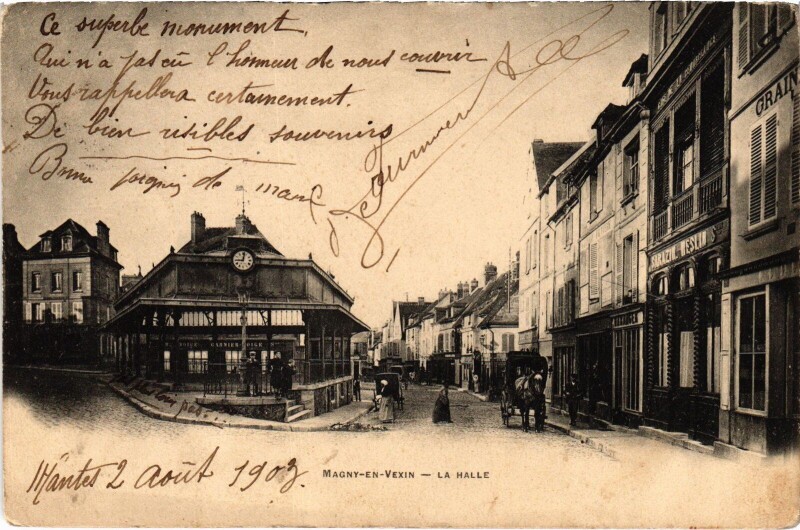 Ce superbe monument,
Qui n'a pas eû l'honneur de nous couvrir
Vous rappellera certainement.
De bien risibles souvenirs
Bonne de
GRAIN
MESLIN
GARNIER
Mantes 2 Août 1903.
MAGNY-EN-VEXIN — LA HALLE